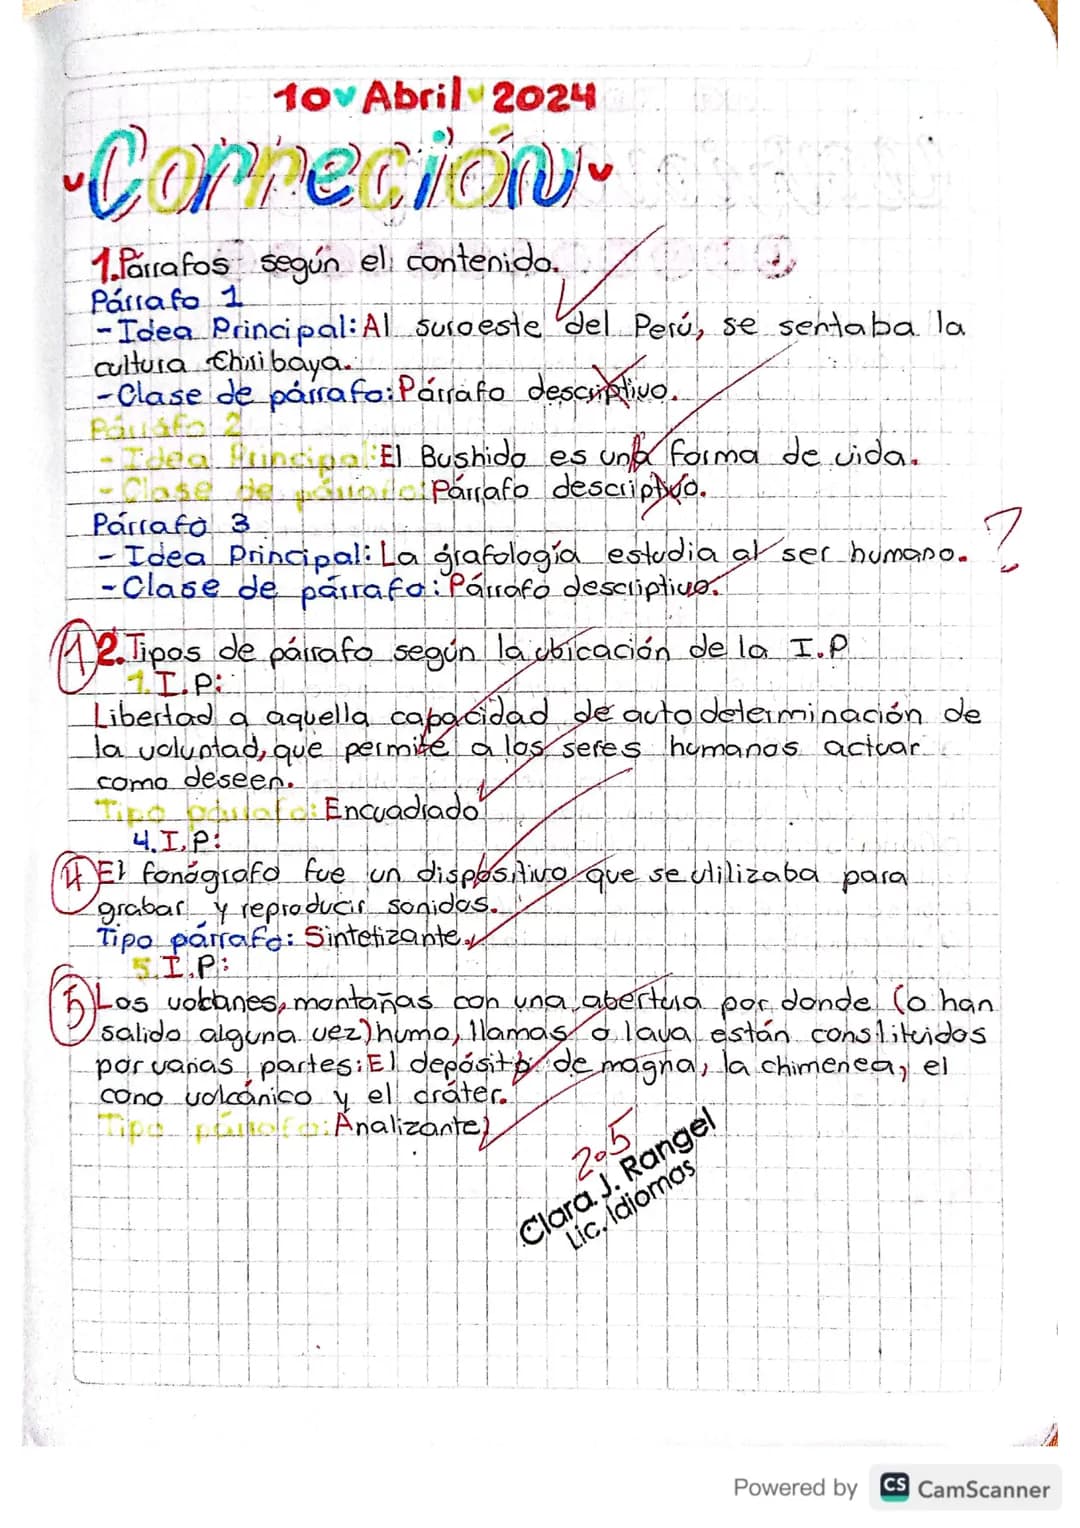 10 Abril 2024
Correción
1. Párrafos según el contenido.
Párrafo 1
- Idea Principal: Al suroeste del Perú, se sentaba la
cultura Chiribaya.
- Clase de párrafo: Párrafo descriptivo.
Párrafo 2
- Idea Principal: El Bushido es una forma de vida.
- Clase de párrafo: Párrafo descriptivo.
Párrafo 3
- Idea Principal: La grafología estudia al ser humano. ?
- Clase de párrafo: Párrafo descriptivo.
1 2. Tipos de párrafo según la ubicación de la I.P
1. I.P:
Libertad a aquella capacidad de autodeterminación de
la voluntad, que permite a los seres humanos actuar
como deseen.
Tipo párrafo: Encuadrado
4. I.P:
4 El fonógrafo fue un dispositivo que se utilizaba para
grabar y reproducir sonidos.
Tipo párrafo: Sintetizante.
5. I.P:
5 Los volcanes, montañas con una abertura por donde (o han
salido alguna vez) humo, llamas o lava están constituidos
por varias partes: El depósito de magna, la chimenea, el
cono volcánico y el cráter.
Tipo párrafo: Analizante
2.5
Clara. J. Rangel
Lic. Idiomas
Powered by CS CamScanner